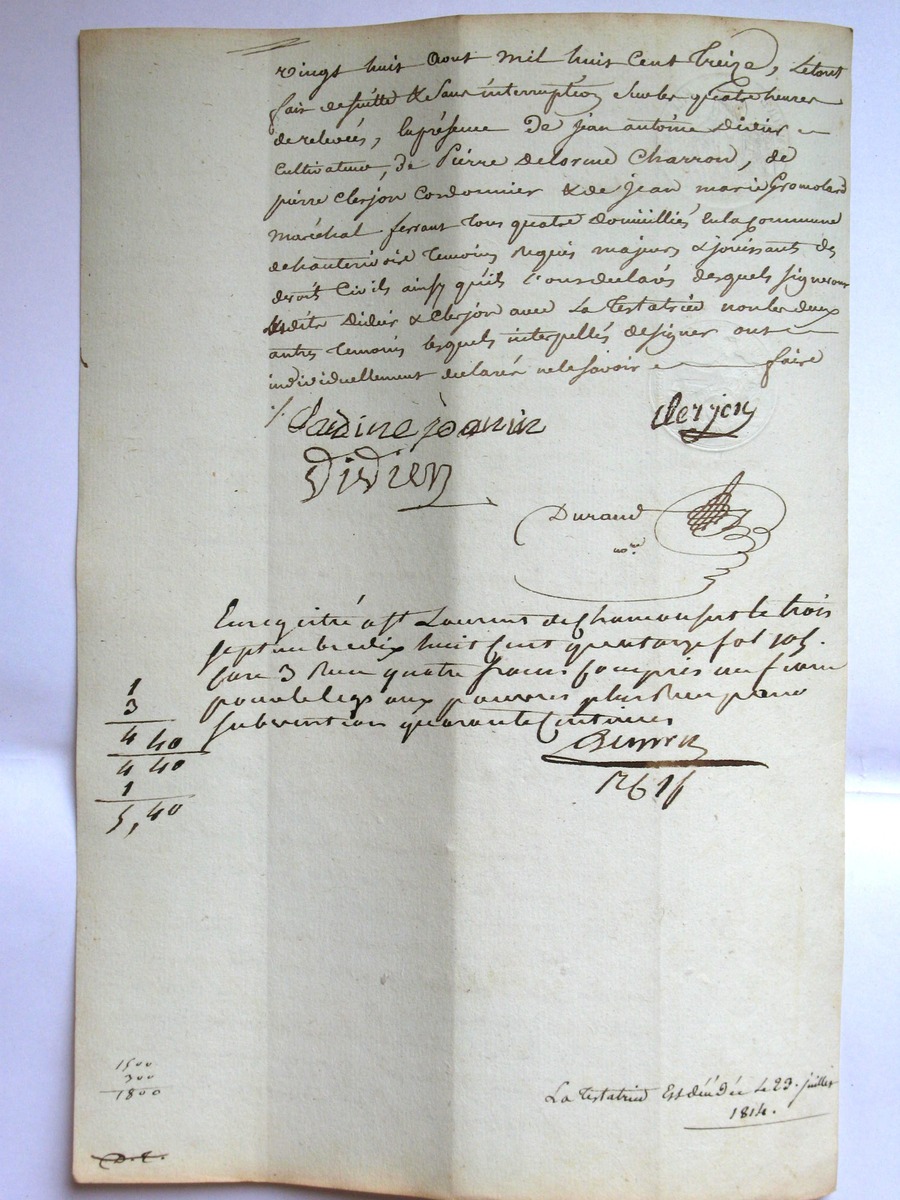 vingt huit aout mil huit cent treize, letout
fait desuitte & sans interruption sur les quatre heures
de relevées, la présence de jean antoine Didier
cultivateur, de Pierre delorme Charron, de
pierre Clerjon Cordonnier & de Jean marie Gromolard
Maréchal ferrant tous quatre domiciliés en la Commune
de hauterivoire temoins requis majeurs & jouissants des
droits Civils ainsy quils l'ont déclarés desquels signeront
lesdits Didier & Clerjon avec La Testatrice non les deux
autres temoins lesquels interpellés designer ont
individuellement declarés nele savoir faire
./.
Clerjon
Didier
Durand
nore
Enregistré a St Laurent de Chamousset le trois
septembre dix huit cent quatorze fol 105.
Case 3 Reçu quatre francs Compris un franc
pour le legs aux pauvres plus Reçu pour
subvention quarante Centimes
1
3
4 40
4 40
1
5,40
1500
300
1800
La Testatrice Est décédée le 23. juillet
1814.